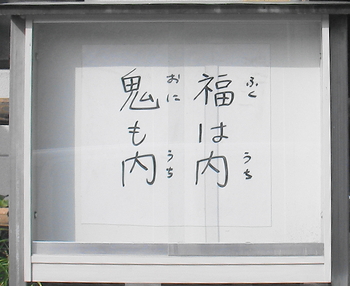 福は内
ふく
うち
鬼も内
おに
うち